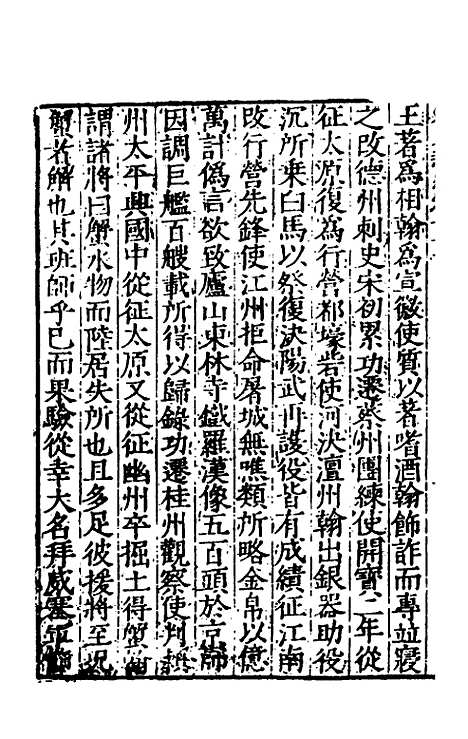 王著爲相翰爲宣徽使質以著嗜酒翰飾詐而專並寢
之改德州刺史宋初累功遷蔡州團練使開寶二年從
征太原復爲行營都壕砦使河決澶州翰出銀器助役
沉所乗白馬以祭復決陽武再護役皆有成績征江南
改行營先鋒使江州拒命屠城無噍類所略金帛以億
萬計僞言欲致廬山東林寺鐵羅漢像五百頭於京師
因調巨艦百艘載所得以歸錄功遷桂州觀察使判潁
州太平興國中從征太原又從征幽州卒掘土得蟹翰
謂諸將曰蟹水物而陸居失所也且多足彼援將至况
蟹者解也其班師乎已而果驗從幸大名拜威塞軍節